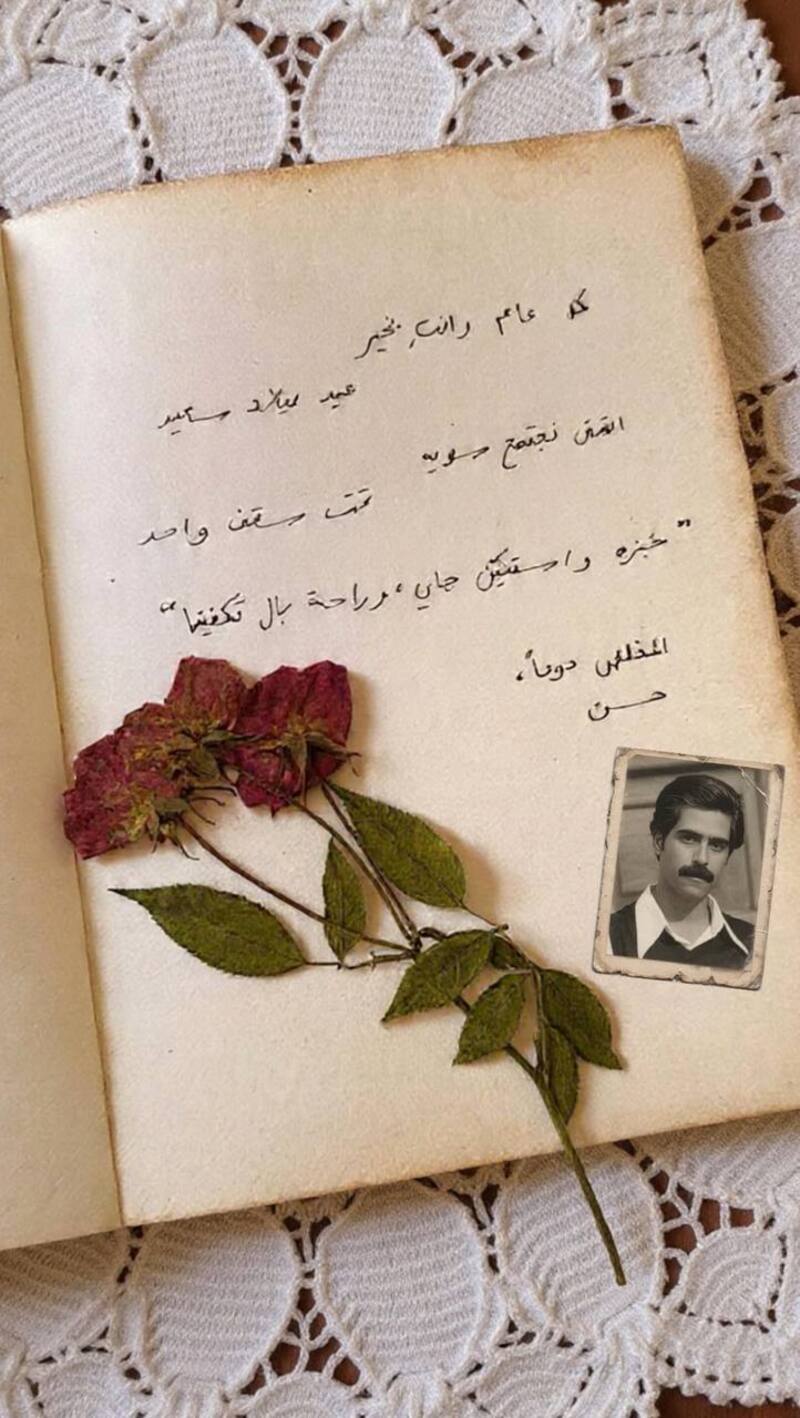 كل عام وانتِ بخير
عيد ميلاد سعيد
اتمنى نجتمع سويه
تحت سقف واحد
"خبزه واستكّان جاي، وراحة بال تكفينا"
المخلص دوماً،
حسن